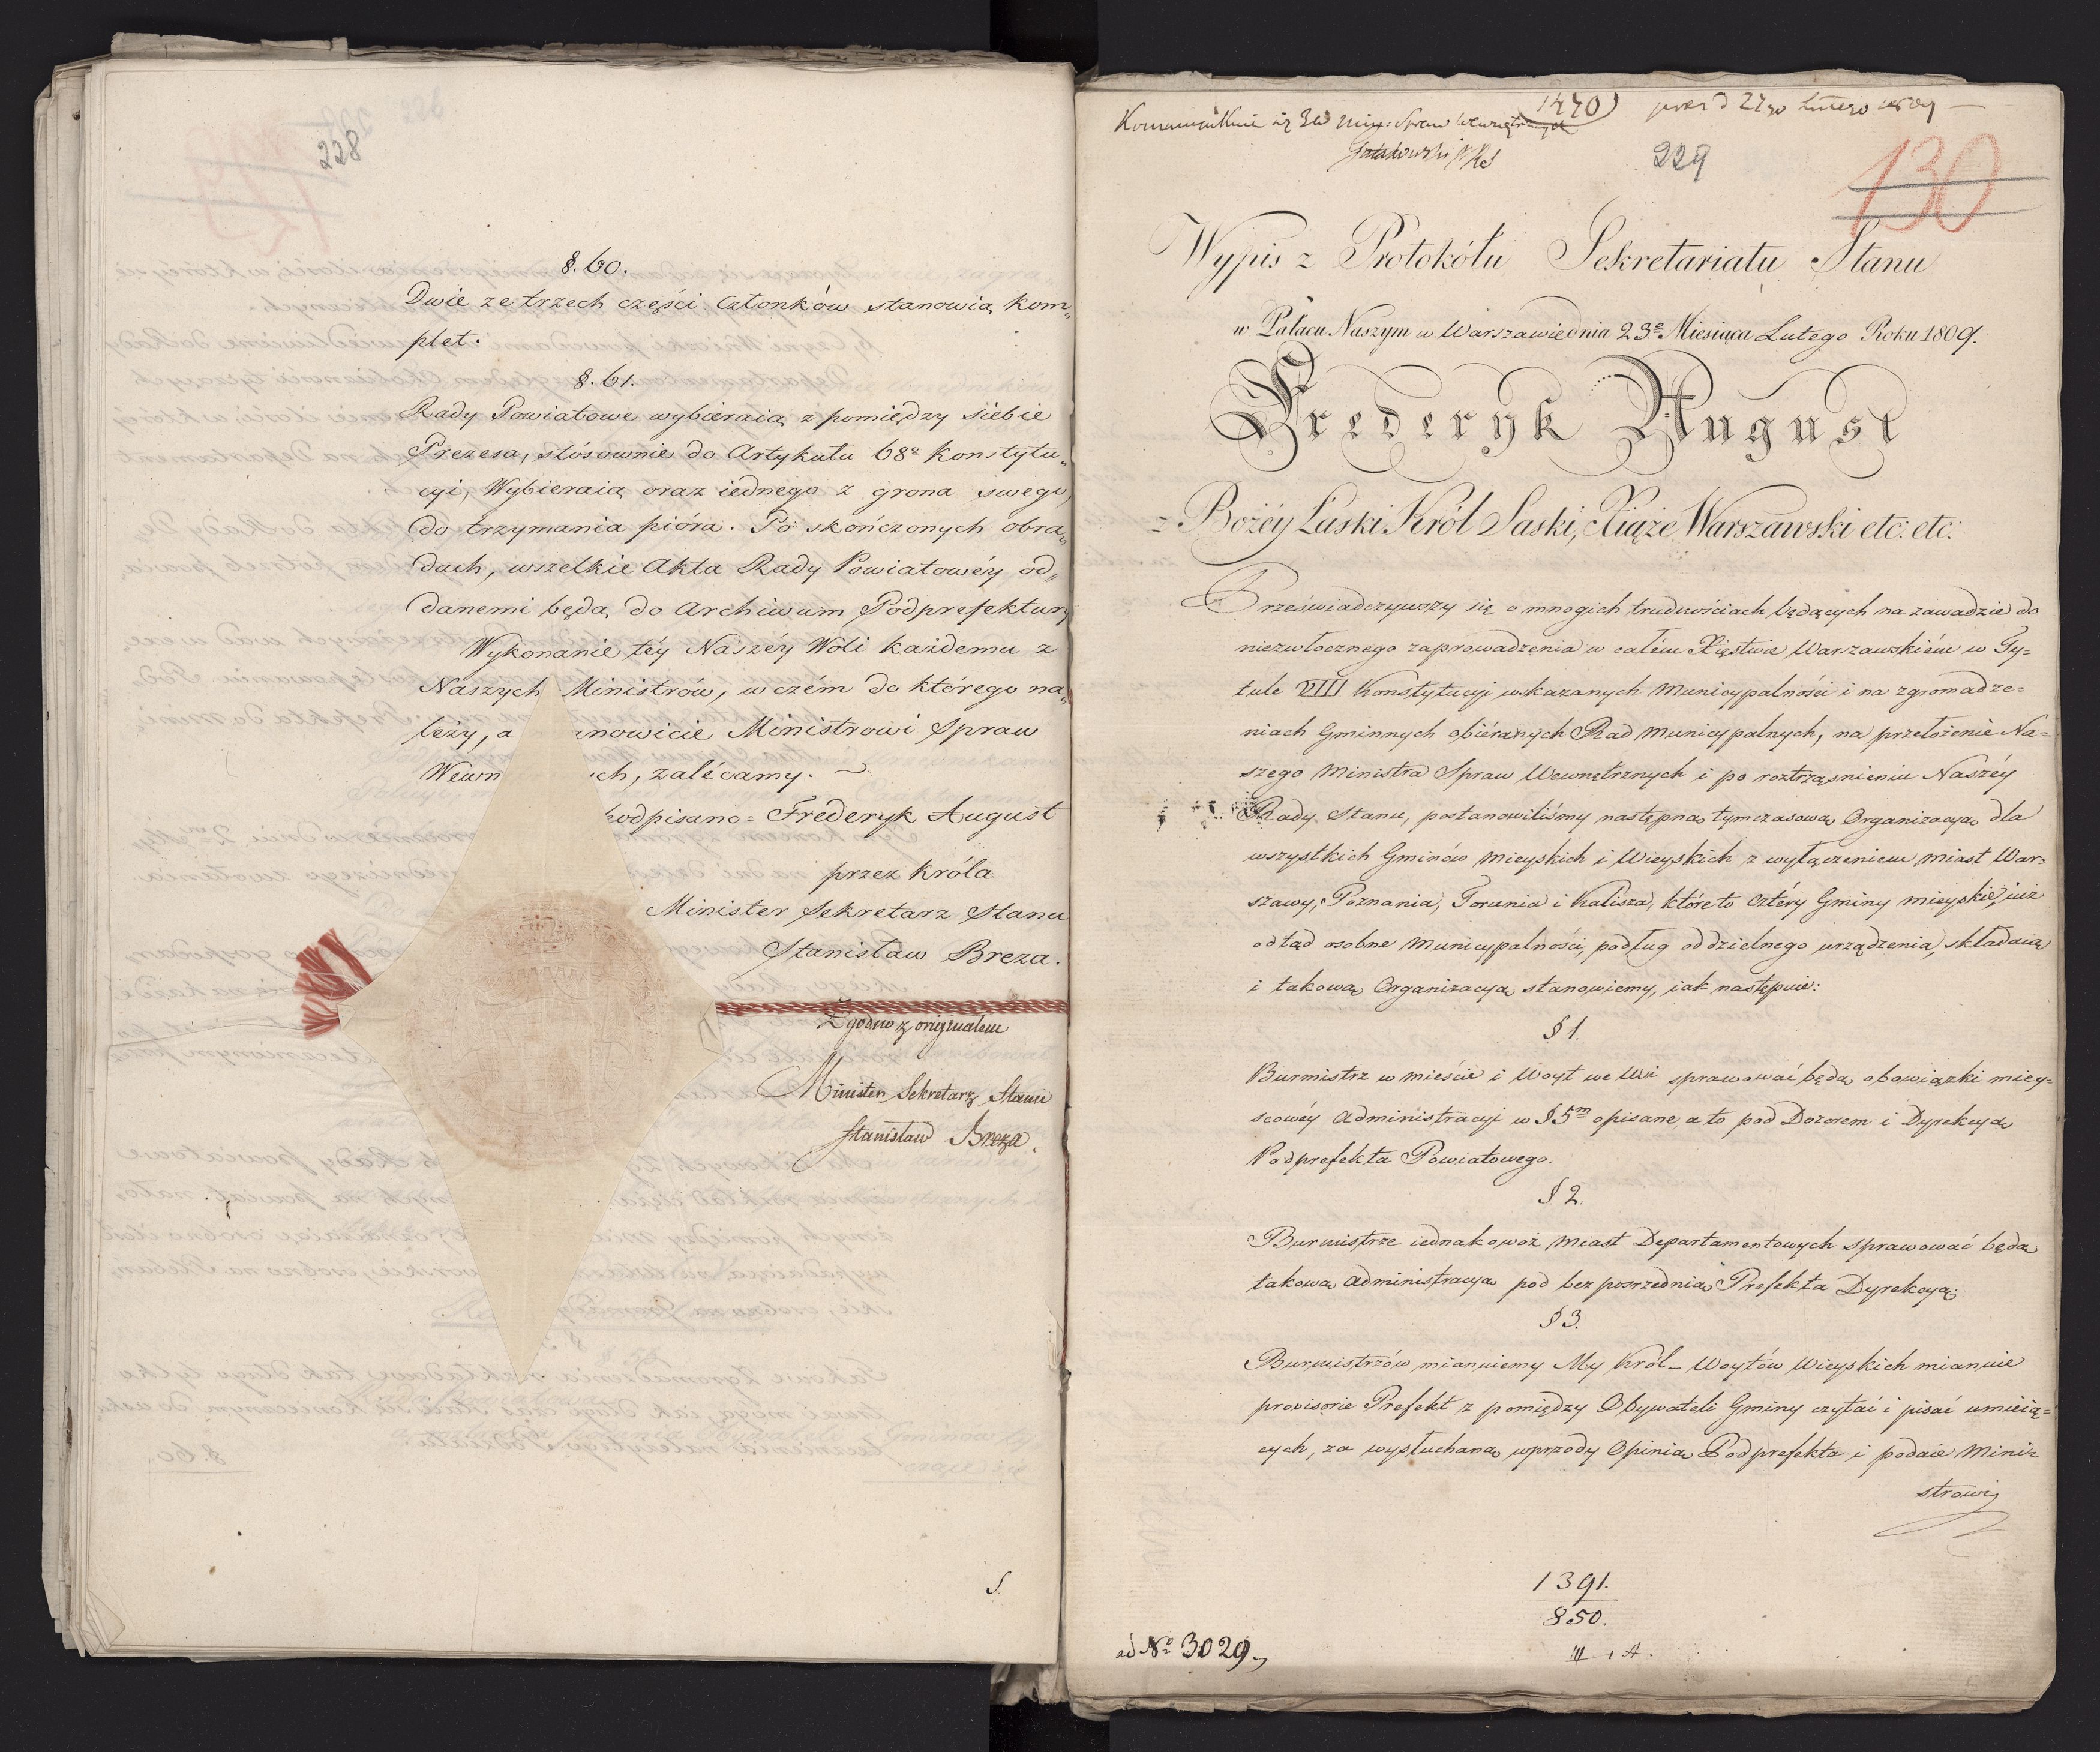 228
§. 60.
Dwie ze trzech części Członków stanowią kom„
plet.
§. 61.
Rady Powiatowe wybieraią z pomiędzy siebie
Prezesa, stósownie do Artykułu 68º Konstytu„
cyi, Wybieraią oraz iednego z grona swego,
do trzymania pióra. Po skończonych obra„
dach, wszelkie Akta Rady Powiatowéy od„
danemi będą do Archiwum Podprefektury
Wykonanie téy Naszéy Woli każdemu z
Naszych Ministrów, w czém do którego na„
leży, a anowicie Ministrowi Spraw
Wewn ch, zalécamy.
podpisano = Frederyk August
przez Króla
Minister Sekretarz Stanu
Stanisław Breza.
Zgodno z originałem
Minister Sekretarz Stanu
Stanisław Breza.
S.
1470 27go Lutego 1809
Kommunikuie się Spraw Wewnętrznych
229
130
Wypis z Protokółu Sekretariatu Stanu
w Pałacu Naszym w Warszawie dnia 23º Miesiąca Lutego Roku 1809.
Frederyk August
z Bożéy Łaski Król Saski, Xiąże Warszawski etc: etc:
Przeświadczywszy się o mnogich trudnościach będących na zawadzie do
niezwłocznego zaprowadzenia w całém Xięstwie Warszawskiém w Ty=
tule VIII Konstytucyi wskazanych Municypalności i na zgromadze=
niach Gminnych obiéranych Rad Municypalnych, na przełożenie Na=
szego Ministra Spraw Wewnętrznych i po roztrząśnieniu Naszéy
Rady Stanu, postanowiliśmy następną tymczasową Organizacyą dla
wszystkich Gminów Mieyskich i Wieyskich z wyłączeniem miast War=
szawy, Poznania, Torunia i Kalisza, które to cztéry Gminy mieyskie, iuż
odtąd osobne Municypalności, podług oddzielnego urządzenia, składaią
i takową Organizacyą stanowiemy, iak następuie:
§ 1.
Burmistrz w mieście i Woyt we Wsi sprawować będą obowiązki miey=
scowéy Administracyi w § 5m opisane, a to pod Dozorem i Dyrekcyą
Podprefekta Powiatowego.
§ 2.
Burmistrze iednakowoż Miast Departamentowych sprawować będą
takową Administracyą pod bezpośrzednią Prefekta Dyrekcyą.
§ 3.
Burmistrzów mianuiemy My Król – Woytów Wieyskich mianuie
provisorie Prefekt z pomiędzy Obywateli Gminy czytać i pisać umieią=
cych, za wysłuchaną wprzody Opinią Podprefekta i podaie Mini=
strowi
1391.
850.
ad No 3029.